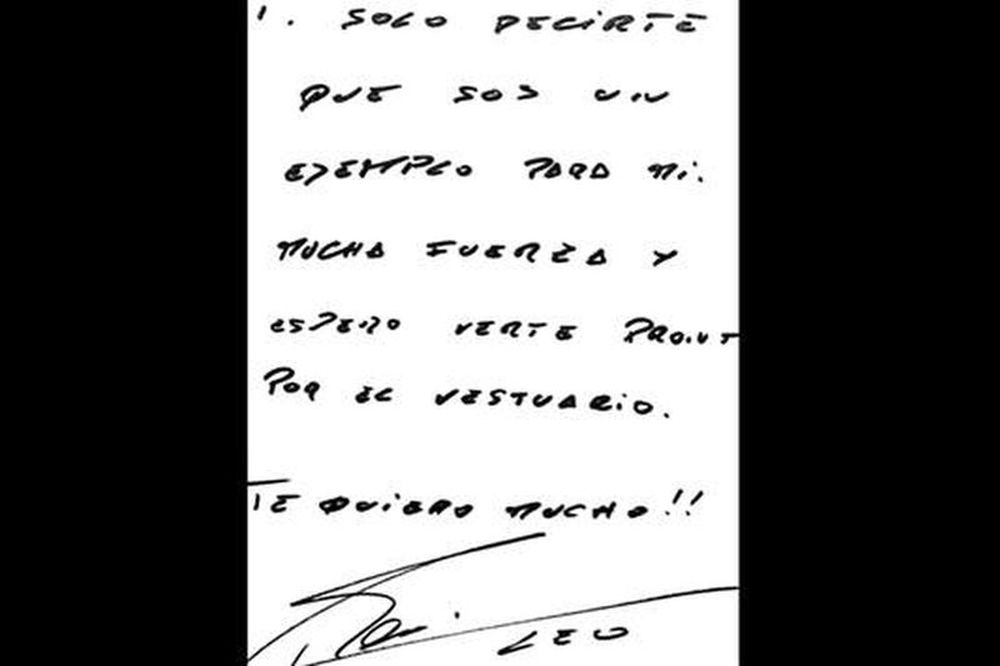 . SOLO DECIRTE
QUE SOS UN
EJEMPLO PARA MI.
MUCHA FUERZA Y
ESPERO VERTE PRONT
POR EL VESTUARIO.
TE QUIERO MUCHO!!
LEO